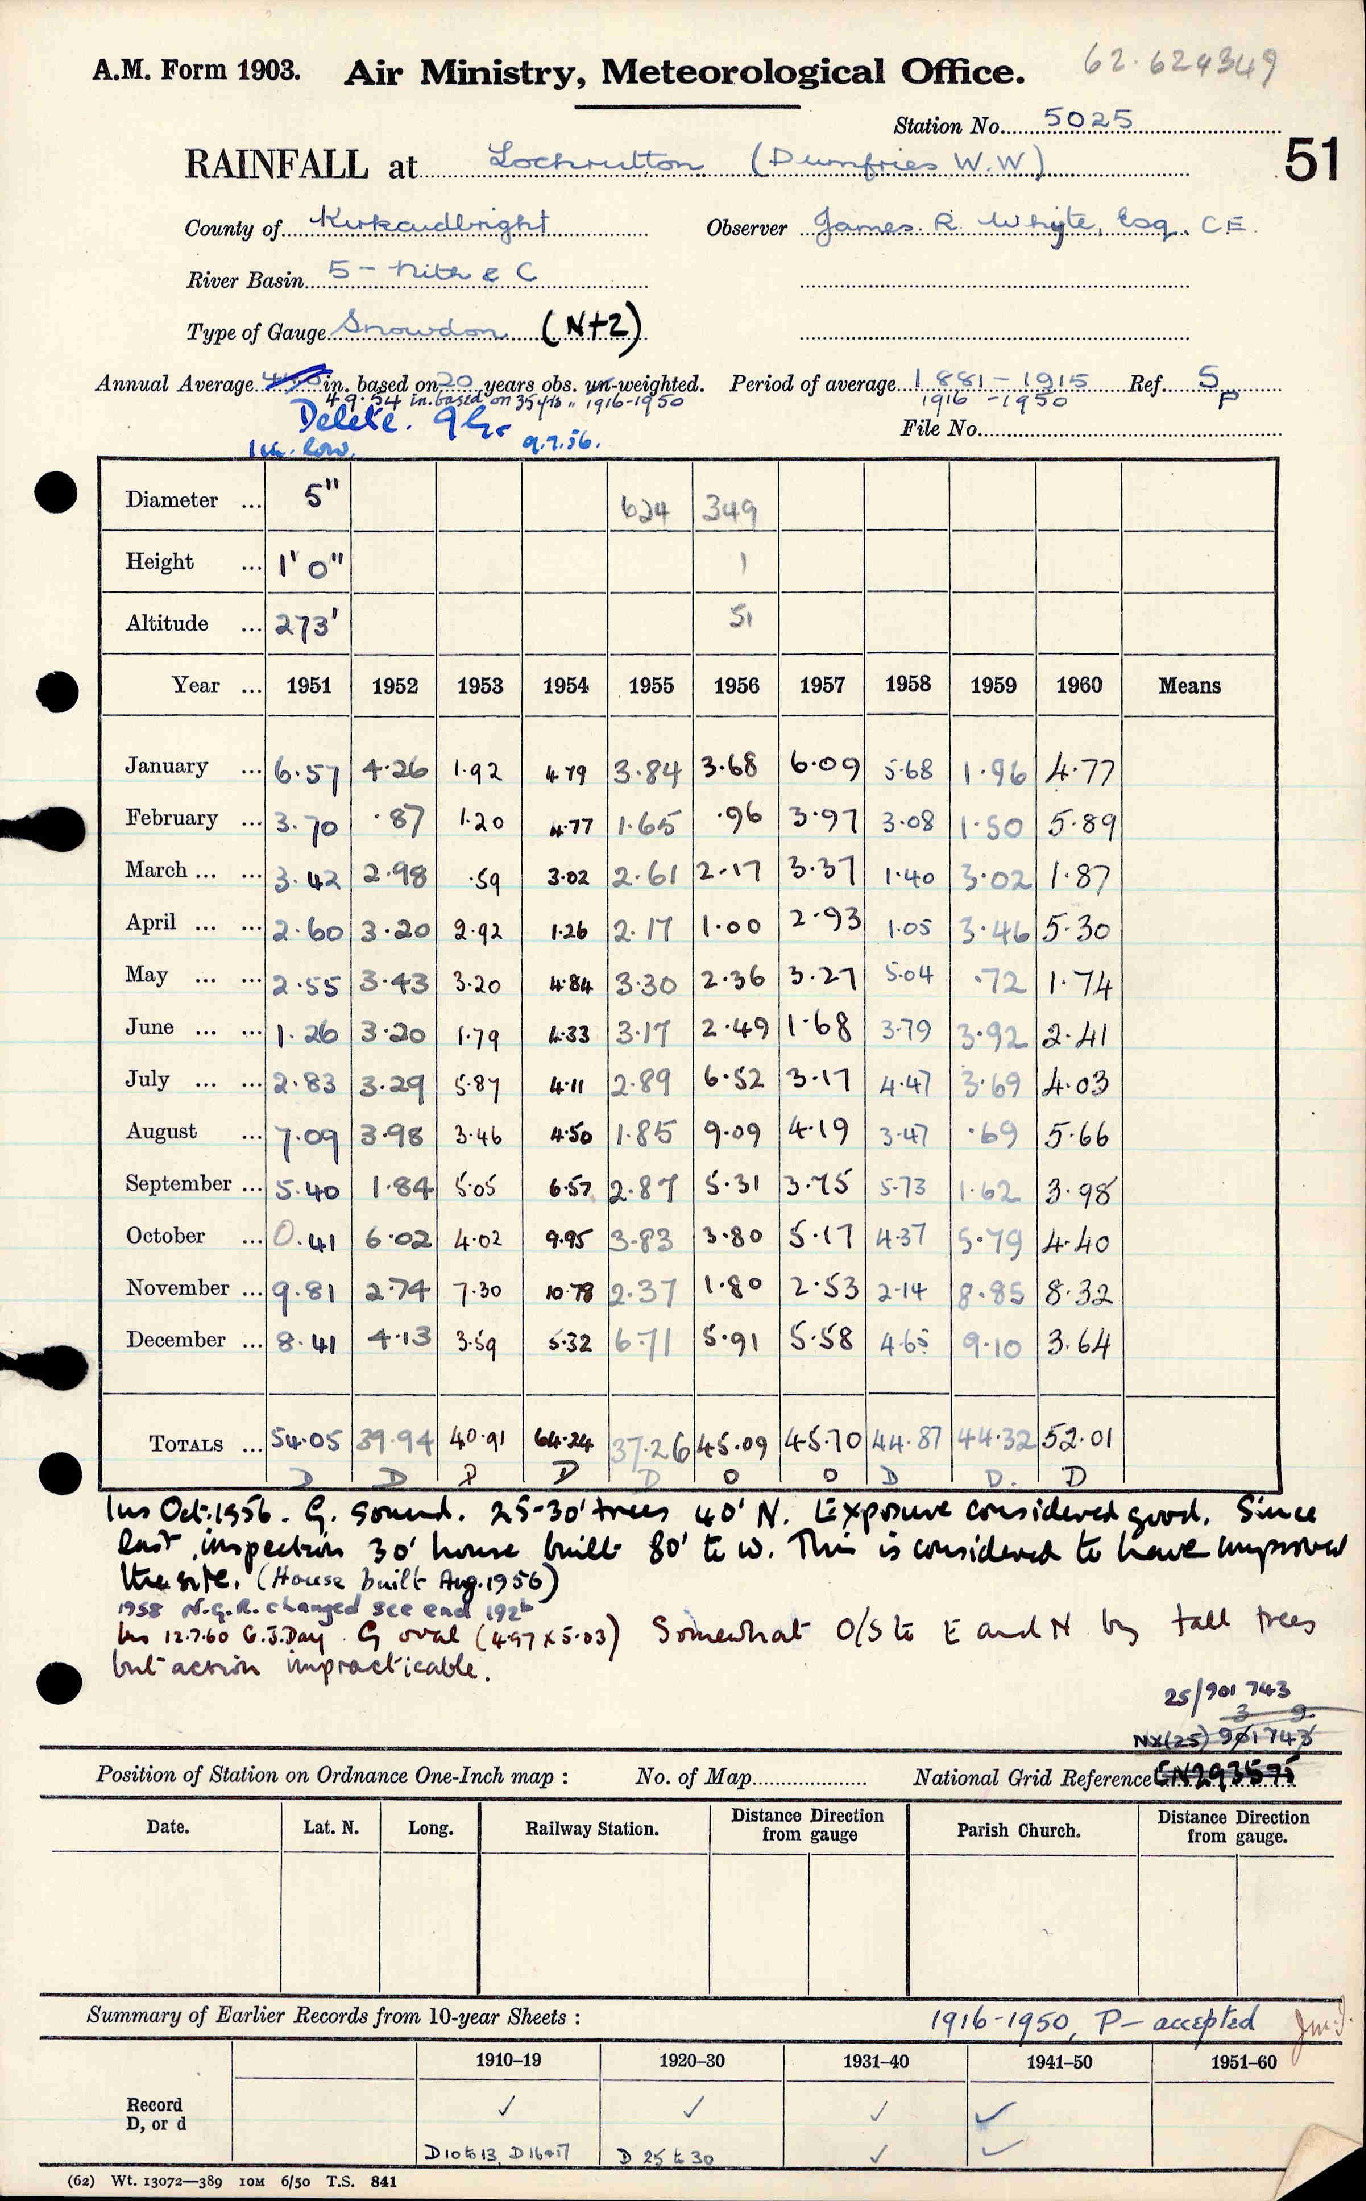 A.M. Form 1903. Air Ministry, Meteorological Office. 62.624349
Station No. 5025
RAINFALL at Lochrutton (Dumfries W.W) 51
County of Kirkcudbright Observer James R Whyte, Esq. C.E.
River Basin 5 - Nith & C
Type of Gauge Snowdon (N+2)
Annual Average in. based on 20 years obs. un-weighted. Period of average 1881-1915 Ref. S
49.54 in. based on 35 yrs " 1916-1950 1916-1950 P
Delete. File No.
1in. low. 9.7.56.
Diameter ... 5" 624 349
Height ... 1' 0" 1
Altitude ... 273' 51
Year ... 1951 1952 1953 1954 1955 1956 1957 1958 1959 1960 Means
January ... 6.57 4.26 1.92 4.79 3.84 3.68 6.09 5.68 1.96 4.77
February ... 3.70 .87 1.20 4.77 1.65 .96 3.97 3.08 1.50 5.89
March ... ... 3.42 2.98 .59 3.02 2.61 2.17 3.37 1.40 3.02 1.87
April ... ... 2.60 3.20 2.92 1.26 2.17 1.00 2.93 1.05 3.46 5.30
May ... ... 2.55 3.43 3.20 4.84 3.30 2.36 3.27 5.04 .72 1.74
June ... ... 1.26 3.20 1.79 4.33 3.17 2.49 1.68 3.79 3.92 2.41
July ... ... 2.83 3.29 5.87 4.11 2.89 6.52 3.17 4.47 3.69 4.03
August ... 7.09 3.98 3.46 4.50 1.85 9.09 4.19 3.47 .69 5.66
September ... 5.40 1.84 5.05 6.57 2.87 5.31 3.75 5.73 1.62 3.98
October ... 0.41 6.02 4.02 9.95 3.83 3.80 5.17 4.37 5.79 4.40
November ... 9.81 2.74 7.30 10.78 2.37 1.80 2.53 2.14 8.85 8.32
December ... 8.41 4.13 3.59 5.32 6.71 5.91 5.58 4.65 9.10 3.64
TOTALS ... 54.05 39.94 40.91 64.24 37.26 45.09 45.70 44.87 44.32 52.01
D D P D D D D D D. D
Ins Oct: 1956. G. sound. 25-30' trees 40' N. Exposure considered good. Since
last inspection 30' house built 80' to W. This is considered to have improved
the site. (House built Aug. 1956)
1958 N.G.R. changed see end 192
Ins 12.7.60 G.J. Day. G oval (4.97 x 5.03) Somewhat O/S to E and N by tall trees
but action impracticable.
25/901 743
3 9
NX(25) 901743
Position of Station on Ordnance One-Inch map : No. of Map National Grid Reference CN293575
Date. Lat. N. Long. Railway Station. Distance Direction from gauge Parish Church. Distance Direction from gauge.
Summary of Earlier Records from 10-year Sheets : 1916-1950, P - accepted
1910-19 1920-30 1931-40 1941-50 1951-60
Record ✓ ✓ ✓ ✓
D, or d
D10 to 13, D16+17 D 25 to 30 ✓ ✓
(62) Wt. 13072—389 10M 6/50 T.S. 841